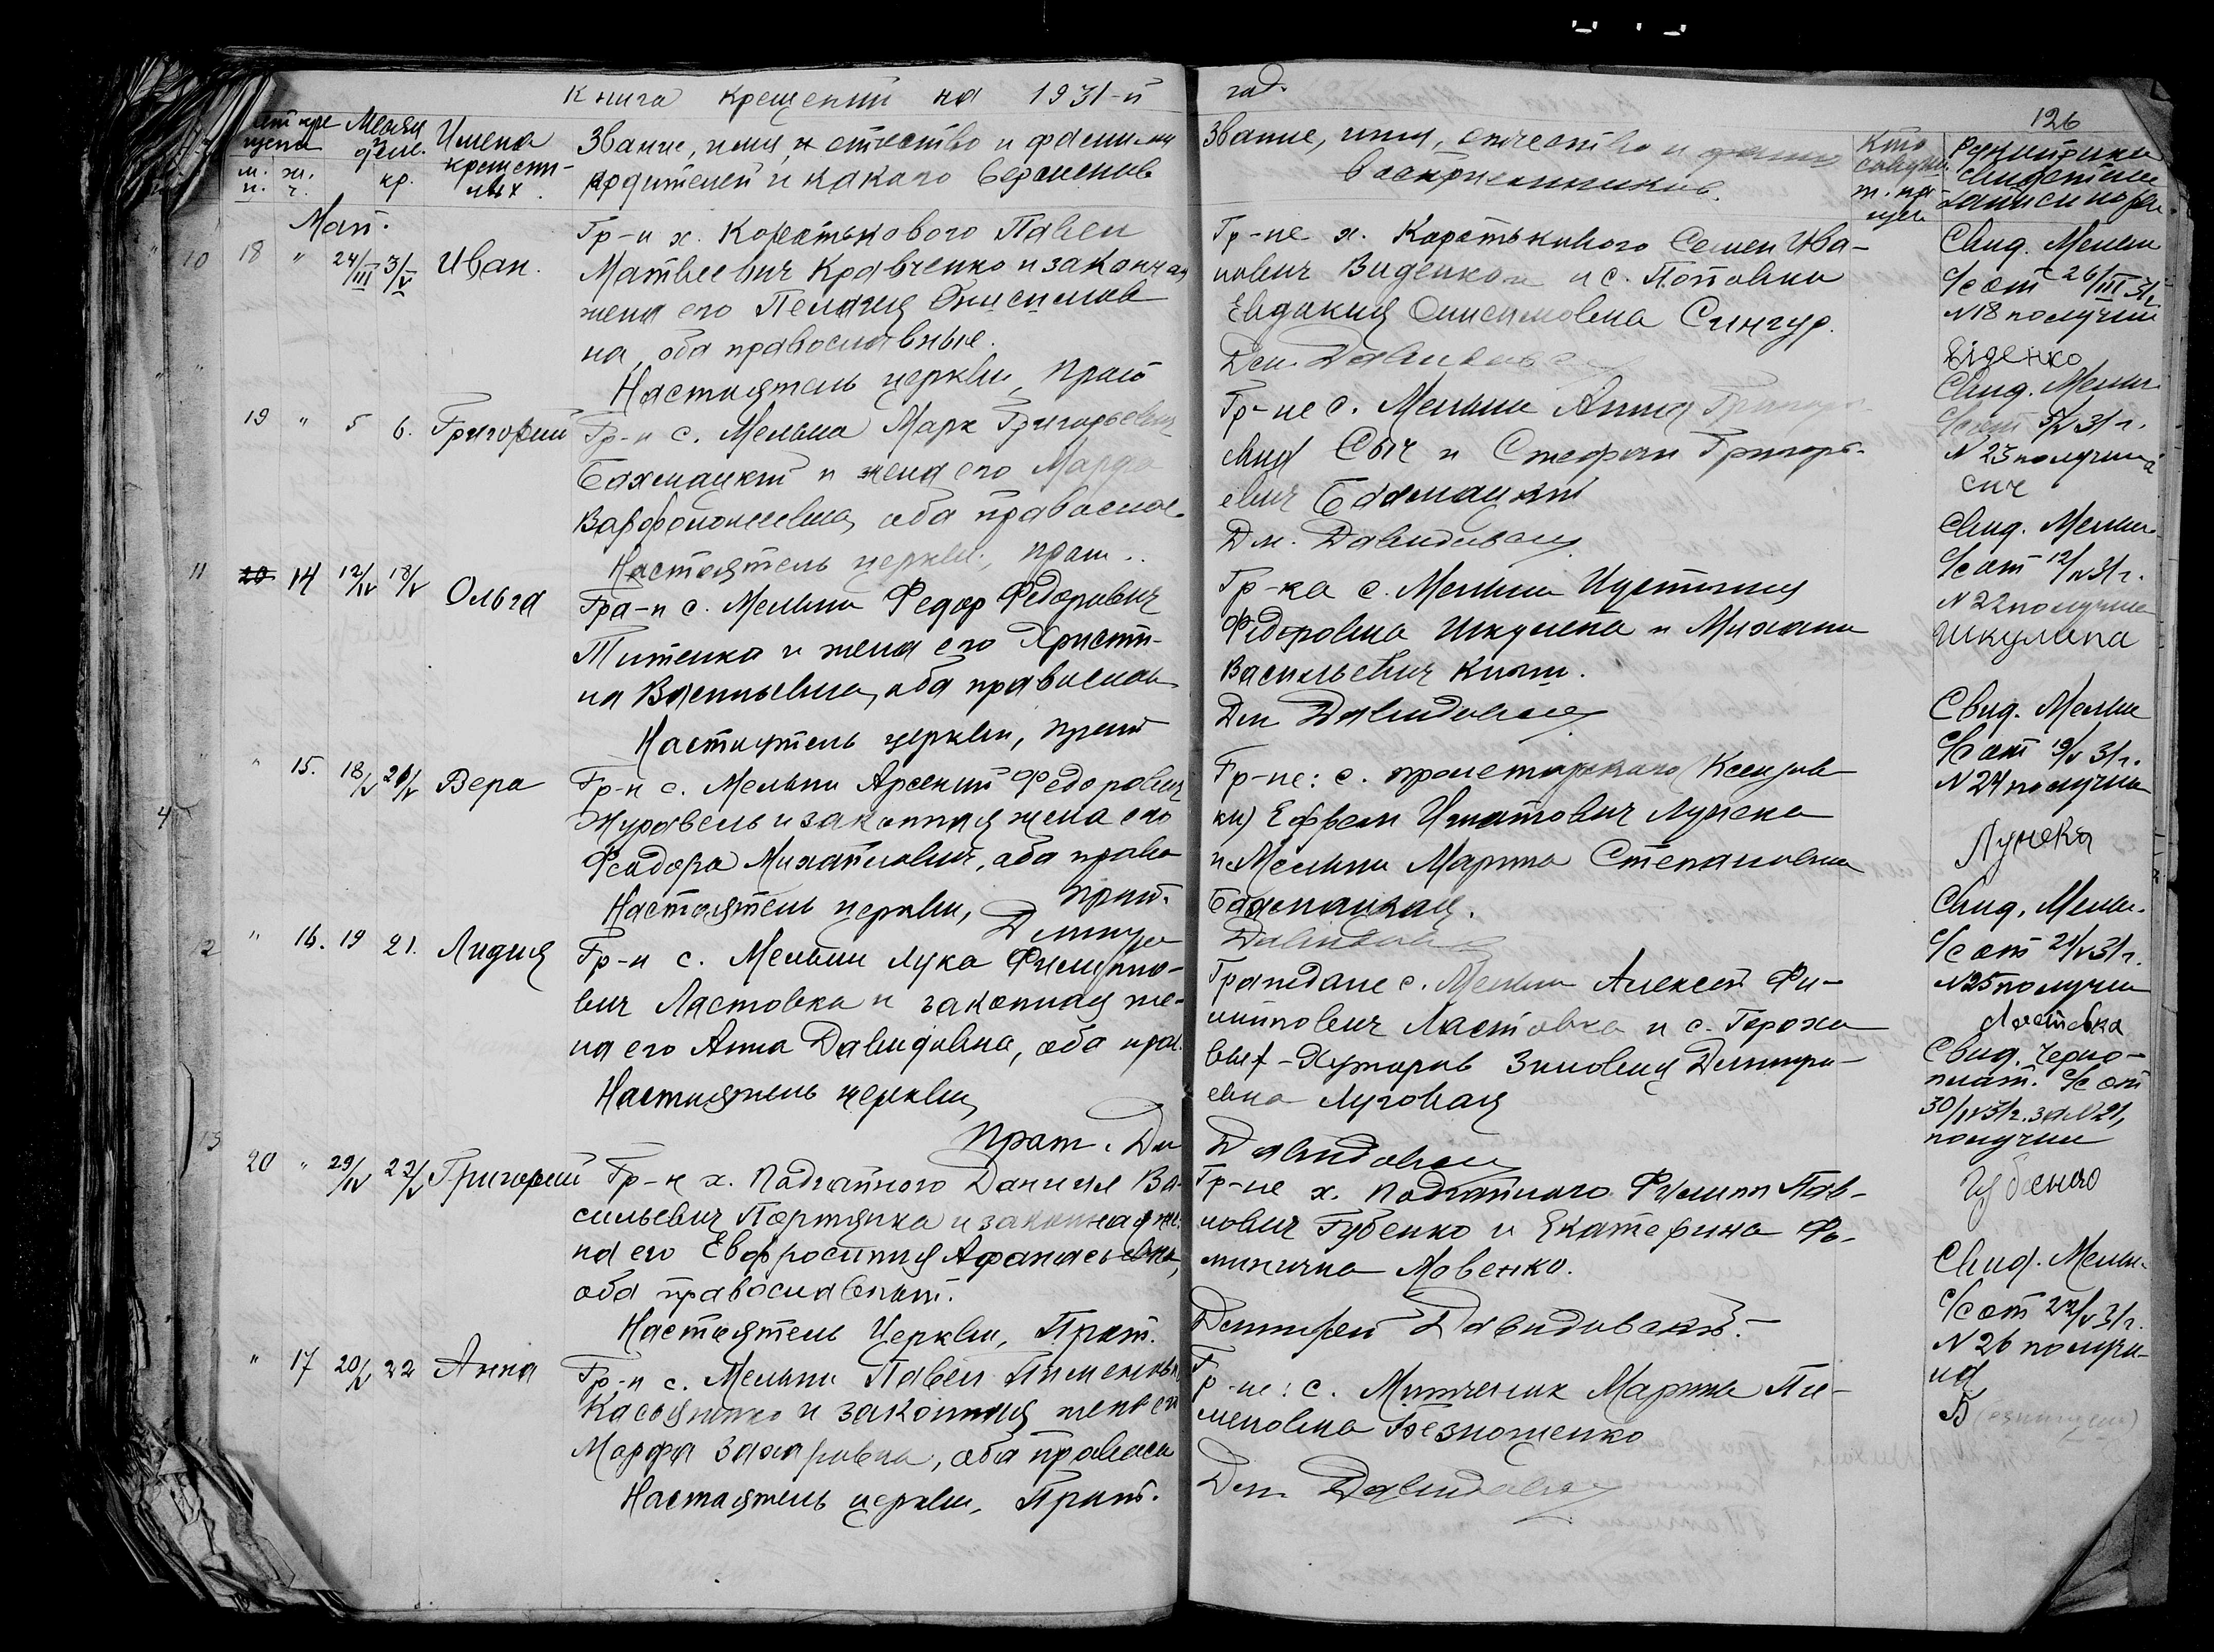 Книга крещений на 1931-й
год.
126
Имена
крещен-
ных
м. ж.
кр.
Звание, имя, отчество и фамилия
родителей и какого
Звание, имя, отчество и
восприемников.
Кто
Май.
18 " 24/III 3/V Иван.
Гр-н х. Коротькового Павел
Матвеевич Кравченко и законная
жена его Пелагия Онисимов
на, оба православные.
Настоятель церкви, Прот
Гр-не х. Коротькового Семен Ива-
нович Виденко и с. Поповки
Евдокия Онисимовна Сингур.
Дм. Давидовс
Свид. Мельн
с/с от 26/III 31г.
N18 получил
Віденко
19 " 5 6. Григорий
Гр-н с. Мельни Марк Григорьевич
Бахмацкий и жена его Марфа
Варфоломеевна, оба православ
Настоятель церкви, прот..
Гр-не с. Мельни Анна Григорь
евна Сыч и Стефан Григорь-
евич Бахмацкий
Дм. Давидовский
Свид. Мельн.
с/с от 5/V 31г.
N 23 получила
Сич
11 20 14 12/IV 18/V Ольга
Гра-н с. Мельни Федор Федорович
Титенко и жена его Христи-
на Васильевна, оба православ
Настоятель церкви, прот
Гр-ка с. Мельни Иустиния
Федоровна Шкулепа и Михаил
Васильевич
Дм Давидовский
Свид. Мельн.
с/с от 12/IV 31г.
N 22 получил
Шкулипа
" 15. 18/V 20/V Вера
Гр-н с. Мельни Арсений Федорович
Журавель и законная жена его
Феодора Михайловна, оба право
Настоятель церкви, прот.
Дмитри
Гр-не: с. пролетарского (Ксензов
ки) Ефрем Игнатович Лупека
и Мельни Марина Степановна
Бахмацкая.
Давидовс
Свид. Мельн
с/с от 19/V 31г.
N 24 получил
Лупека
12 " 16. 19 21. Лидия
Гр-н с. Мельни Лука Филиппо-
вич Ластовка и законная же-
на его Анна Давидовна, оба прав.
Настоятель церкви,
Прот. Дм
Граждане с. Мельни Алексей Фи-
липпович Ластовка и с. Горохо
вых-Хуторов Зиновия Дмитри-
евна Луговая
Давидовский
Свид. Мельн.
с/с от 21/V 31г.
N25 получил
Ластовка
13 20 " 29/IV 22/V Григорий
Гр-н х. Подгайного Даниил Ва-
сильевич Портянка и законная же-
на его Евфросиния Афанасьевна,
оба православный.
Настоятель Церкви, Прот.
Гр-не х. Подгайного Филипп Пав-
лович Губенко и Екатерина Фо-
минична Мовенко.
Дмитрей Давидовский.-
Свид. Черно-
плат. с/с от
30/IV 31г. за N 21,
получил
Губенко
" 17 20/V 22 Анна
Гр-н с. Мельни Павел Пименович
Касьяненко и законная жена его
Марфа Захаровна, оба правосл
Настоятель церкви, Прот.
Гр-не: с. Митченок Марина Пи-
меновна Безношенко
Дм. Давидовский
Свид. Мельн.
с/с от 22/V 31г.
N 26 получи-
ла
Б